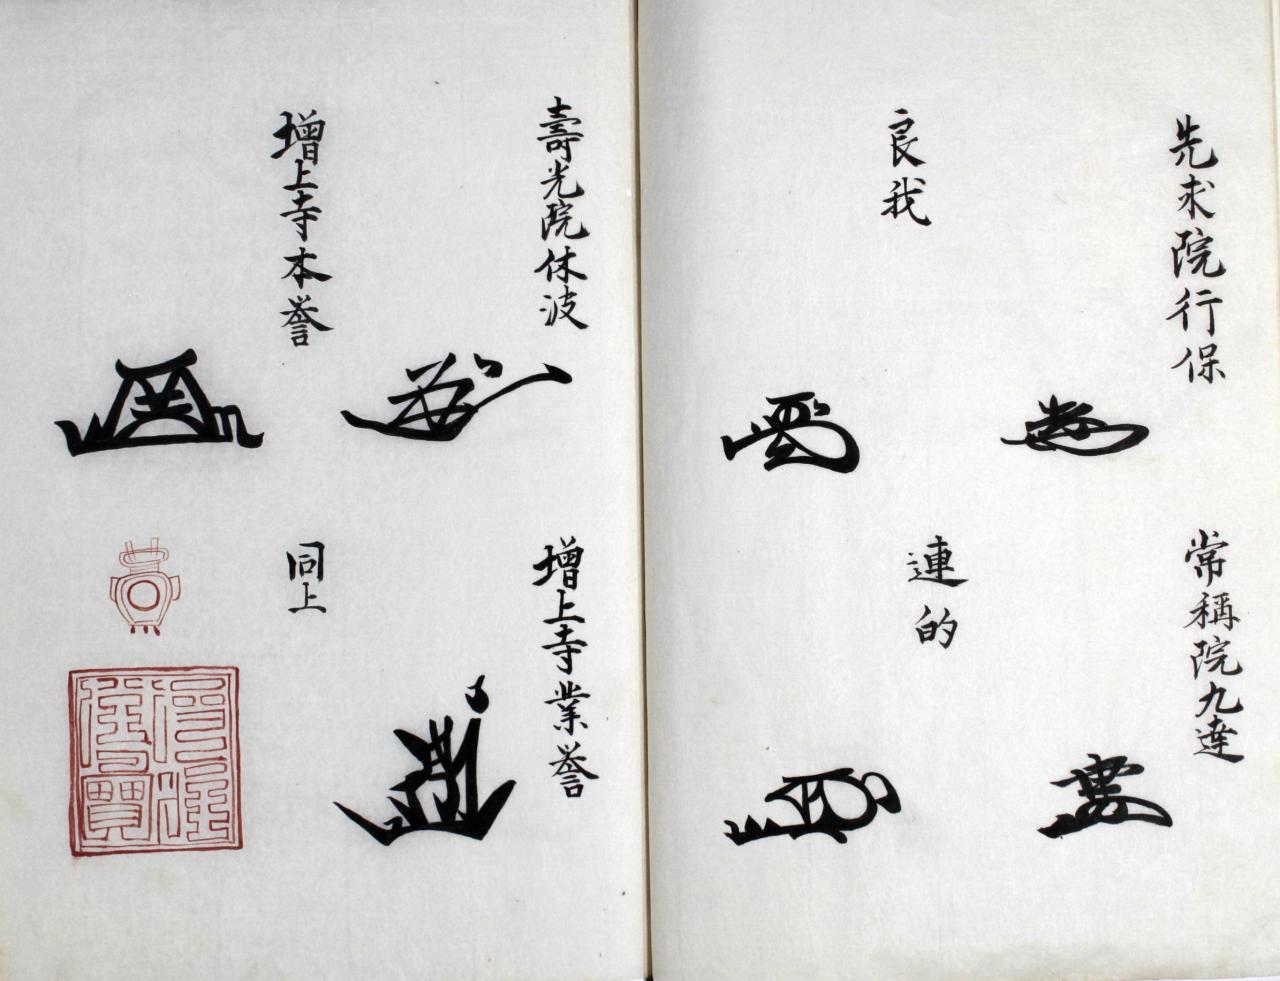 先求院行保
常稱院九達
良我
連的
壽光院休波
增上寺業誉
增上寺本誉
同上